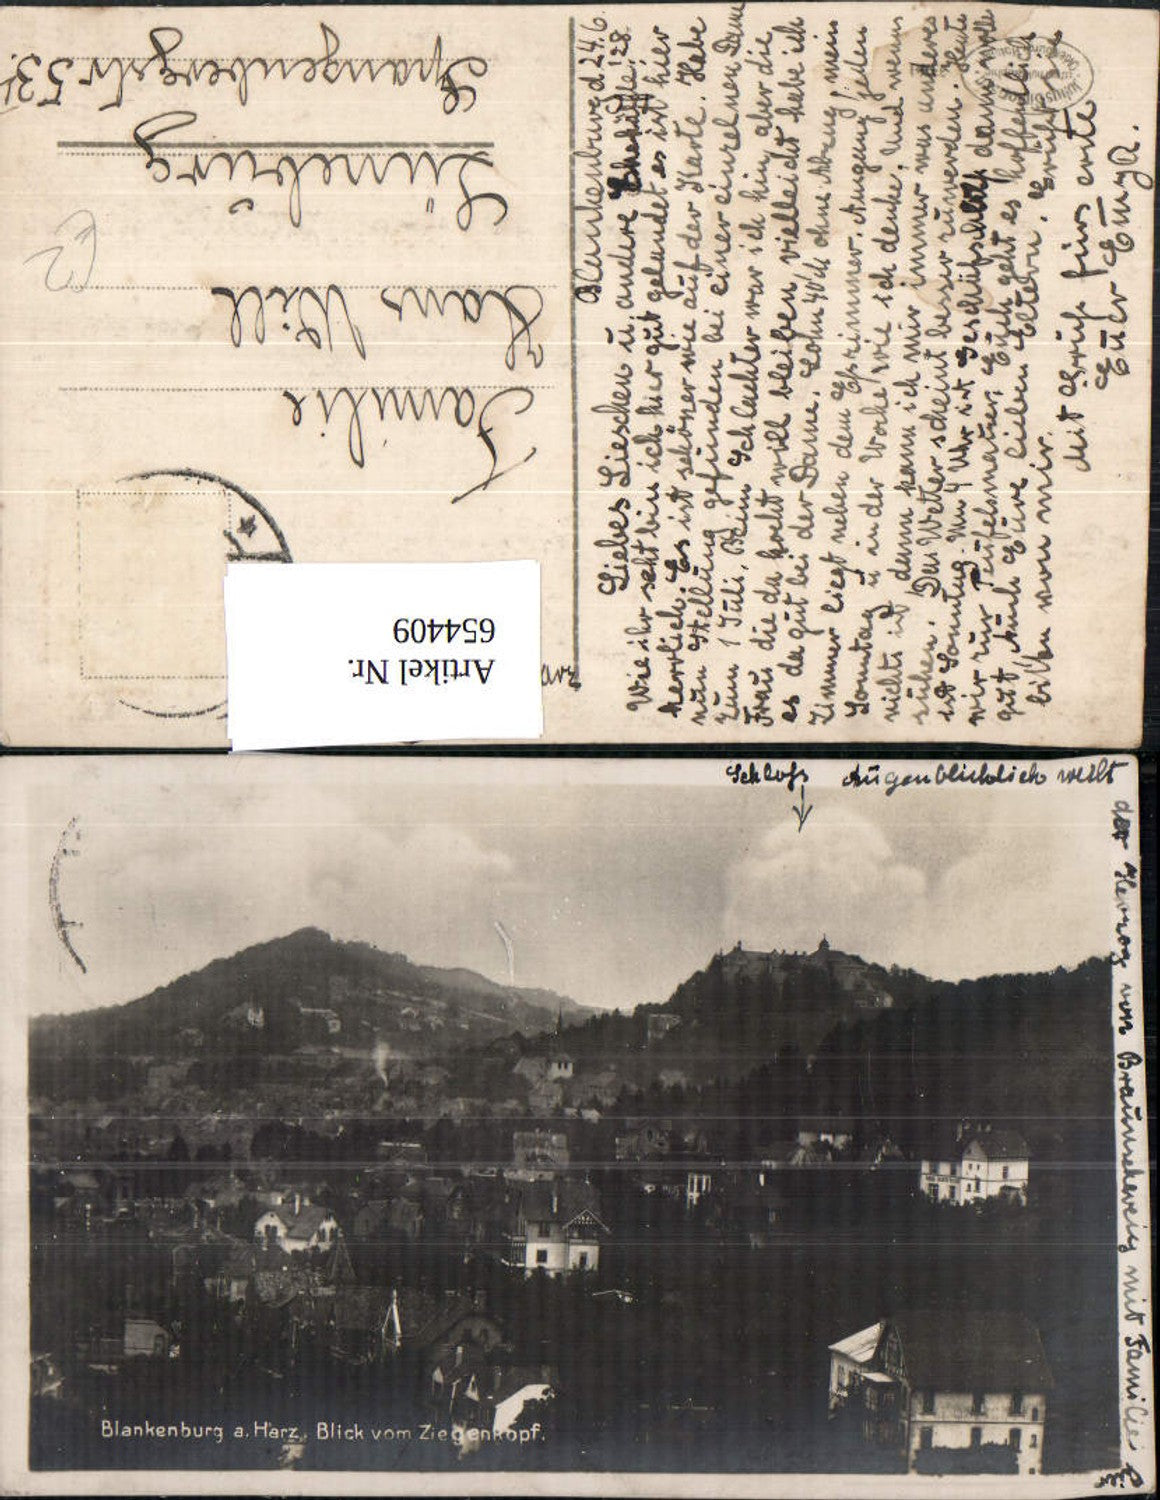 Blankenburg d. 24.6.
'28.
Liebes Lieschen u. andere Ehehälfte!
Wie ihr seht bin ich hier gut gelandet es ist hier
herrlich. Es ist schöner wie auf der Karte. Habe
nun Stellung gefunden bei einer einzelnen Dame
zum 1 Juli. Beim Schlachter war ich hin, aber die
Frau die da kocht will bleiben, vielleicht habe ich
es da gut bei der Dame. Lohn 40 M ohne Abzug, mein
Zimmer liegt neben dem Eszimmer. Ausgang jeden
Sonntag u. in der Woche, wie ich denke. Und wenn
nichts ist, dann kann ich mir immer was anderes
suchen. Das Wetter scheint besser zu werden. Heute
ist Sonntag. Um 4 Uhr ist Geschäfschluß dann wollen
wir zur Teufelsmauer. Euch geht es hoffentlich
gut. Auch Eure lieben Eltern. Grüßt sie
bitte von mir.
Mit Gruß fürs erste
Euer Emmy A.
Familie
Hans Will
Lüneburg
Spangenbergstr 53 I
Artikel Nr.
654409
Schloß Augenblicklich weilt
der Herzog von Braunschweig mit Familie
Blankenburg a. Harz. Blick vom Ziegenkopf.